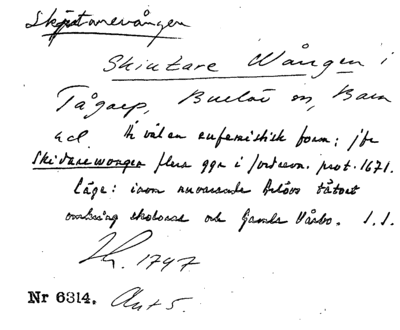 Skjutarevången
Skiutare Wången i
Tågarp, Burlöv sn, Bara
hd. Är väl en eufemistisk form; jfr
Skidarewongen flera ggr i jordrevn. prot. 1671.
Läge: inom nuvarande Arlövs tätort
omkring skolorna och Gamla Vårbo. I.I.
1797
Nr 6314. Ant 5.